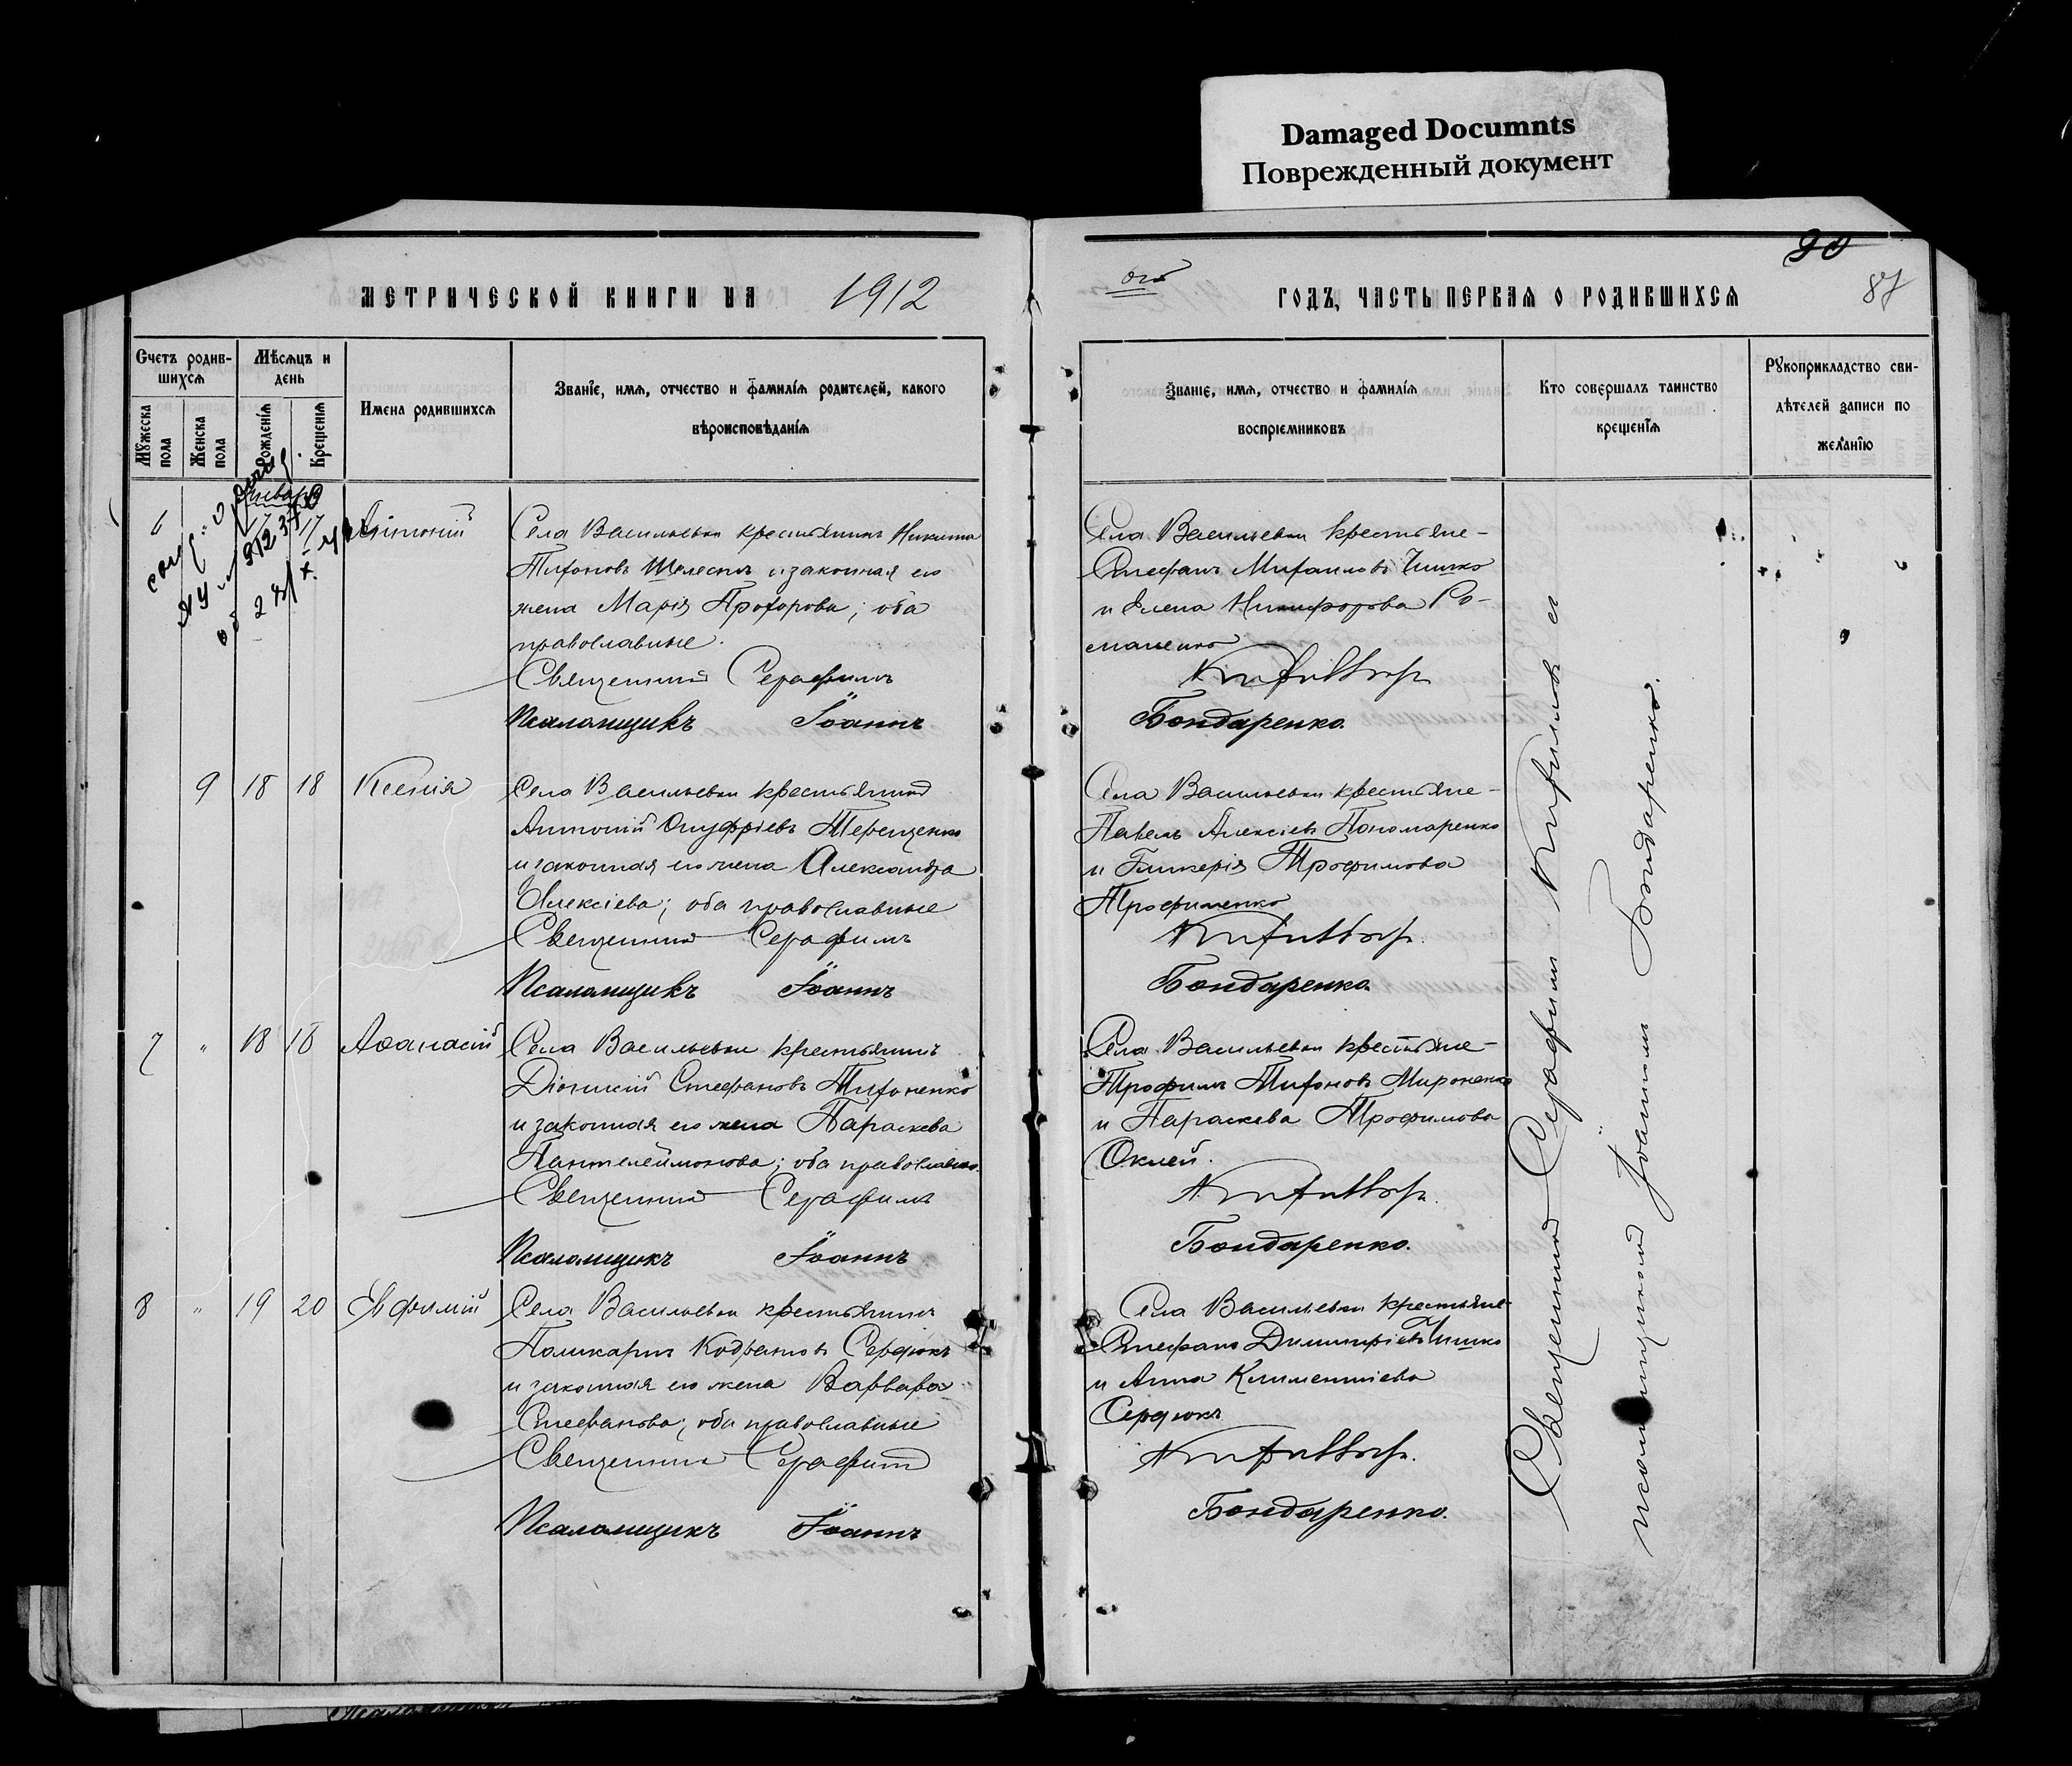 Damaged Documnts
Поврежденный документ
МЕТРИЧЕСКОЙ КНИГИ НА 1912
ого ГОДЪ, ЧАСТЬ ПЕРВАЯ О РОДИВШИХСЯ
90
87
Счетъ родив-
шихся
Мѣсяцъ и
день
Мужеска
пола
Женска
пола
Рожденія
Крещенія
Имена родившихся
Званіе, имя, отчество и фамилія родителей, какого
вѣроисповѣданія
Званіе, имя, отчество и фамилія
воспріемниковъ
Кто совершалъ таинство
крещенія
Рукоприкладство сви-
дѣтелей записи по
желанію
Январь
6 17 17 Антоній
Села Васильевки крестьянинъ Никита
Тихоновъ Шелестъ и законная его
жена Марія Прохорова; оба
православные.
Священникъ Серафимъ
Псаломщикъ Іоаннъ
Села Васильевки крестьяне-
Стефанъ Михаиловъ Тишко
и Елена Никифорова Ро-
маненко
Бондаренко.
9 18 18 Ксенія
Села Васильевки крестьянинъ
Антоній Онуфріевъ Терещенко
и законная его жена Александра
Алексіева; оба православные
Священникъ Серафимъ
Псаломщикъ Іоаннъ
Села Васильевки крестьяне-
Павелъ Алексіевъ Пономаренко
и Гликерія Трофимова
Трофименко
Бондаренко.
7 " 18 18 Аѳанасій
Села Васильевки крестьянинъ
Діонисій Стефановъ Тихоненко
и законная его жена Параскева
Пантелеймонова; оба православн.
Священникъ Серафимъ
Псаломщикъ Іоаннъ
Села Васильевки крестьяне-
Трофимъ Тихоновъ Мироненко
и Параскева Трофимова
Оклей.
Бондаренко.
8 " 19 20 Евфимій
Села Васильевки крестьянинъ
Поликарпъ Кодратовъ Сердюкъ
и законная его жена Варвара
Стефанова; оба православные
Священникъ Серафимъ
Псаломщикъ Іоаннъ
Села Васильевки крестьяне-
Стефанъ Димитріевъ Тишко
и Анна Климентіева
Сердюкъ
Бондаренко.
Священникъ Серафимъ с
псаломщикомъ Іоанномъ Бондаренко.